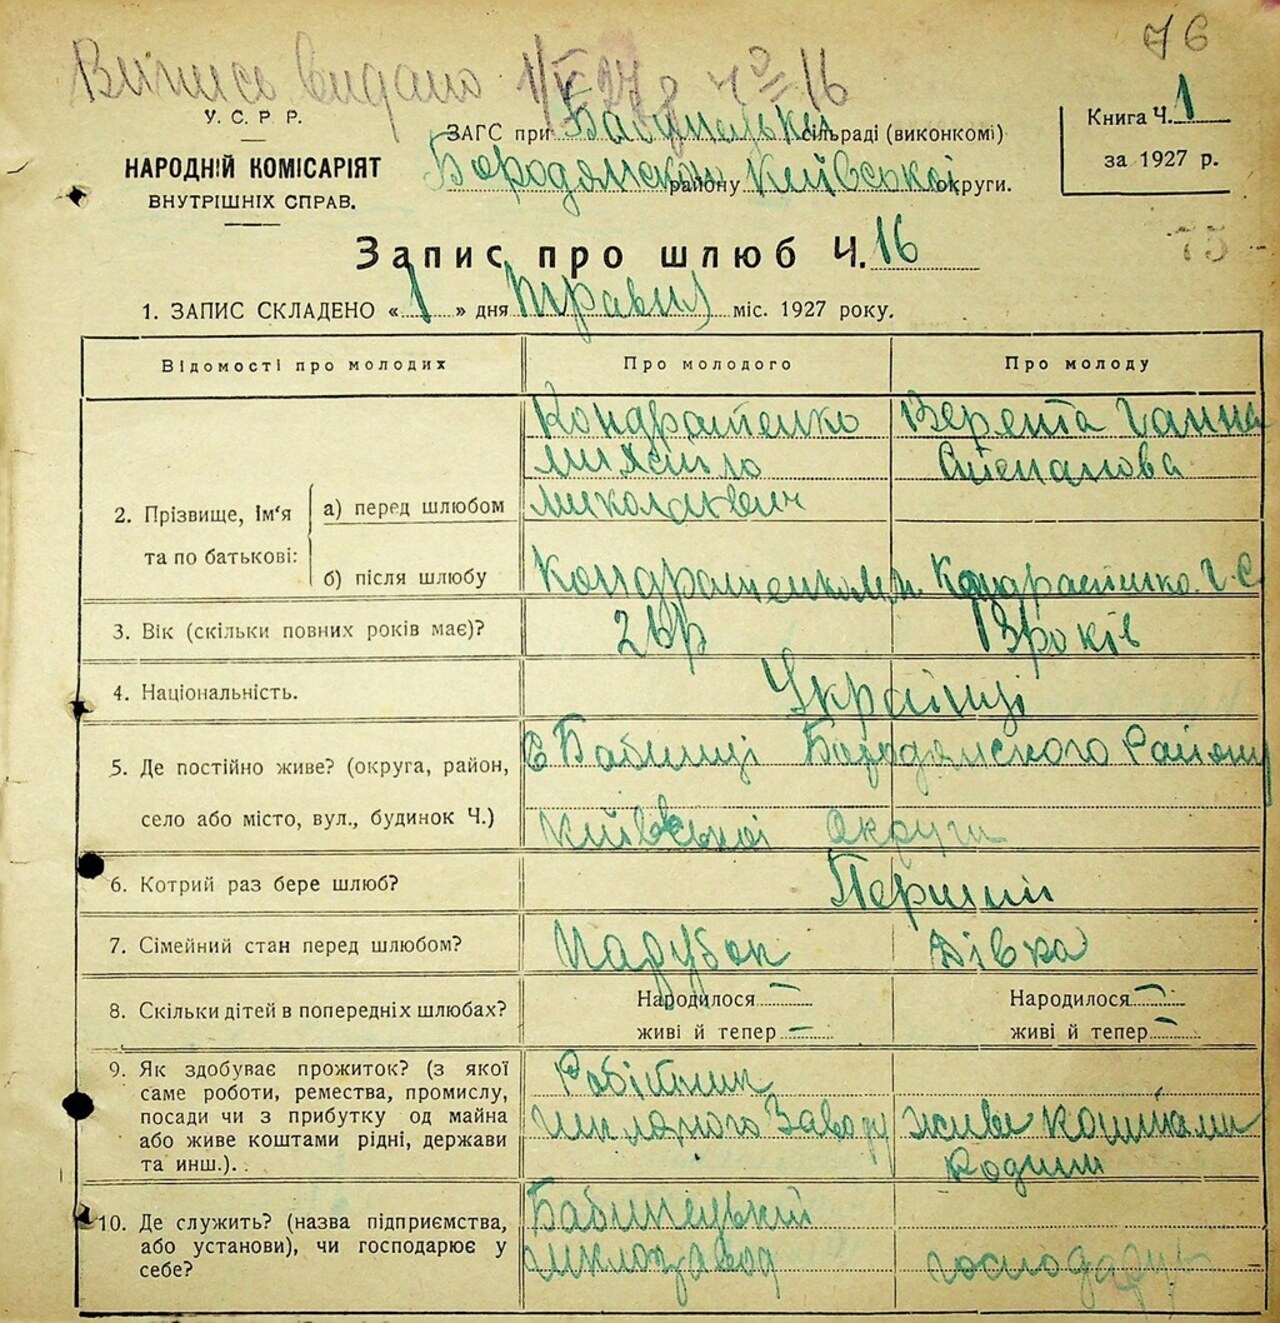 76
Випись видано 1/V 27 р Ч 16
У. С. Р. Р.
НАРОДНІЙ КОМІСАРІЯТ
ВНУТРІШНІХ СПРАВ.
ЗАГС при Бабинецькій сільраді (виконкомі)
Бородянского району Київської округи.
Книга Ч. 1
за 1927 р.
75
Запис про шлюб Ч. 16
1. ЗАПИС СКЛАДЕНО « 1 » дня Травня міс. 1927 року.
Відомості про молодих Про молодого Про молоду
Кондратенко Верета Ганна
Михайло Степанова
2. Прізвище, Ім'я а) перед шлюбом Миколаевич
та по батькові:
б) після шлюбу Кондратенко М.М. Кондратенко Г. С.
3. Вік (скільки повних років має)? років
4. Національність. Українці
5. Де постійно живе? (округа, район, С Бабинці Бородянского Району
село або місто, вул., будинок Ч.) Київської Округи
6. Котрий раз бере шлюб? Перший
7. Сімейний стан перед шлюбом? Парубок Дівка
8. Скільки дітей в попередніх шлюбах? Народилося — Народилося —
живі й тепер — живі й тепер —
9. Як здобуває прожиток? (з якої Робітник
саме роботи, ремества, промислу,
посади чи з прибутку од майна Шкляного Заводу живе коштами
або живе коштами рідні, держави родини
та инш.).
10. Де служить? (назва підприємства, Бабинецький
або установи), чи господарює у
себе? Шклозавод господарує